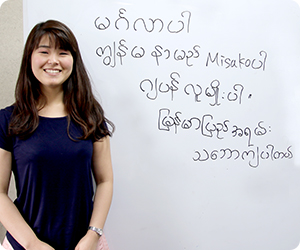 မင်္ဂလာပါ
ကျွန်မ နာမည် Misakoပါ
ဂျပန် လူမျိုးပါ.
မြန်မာပြည် အရမ်း
သဘောကျပါတယ်